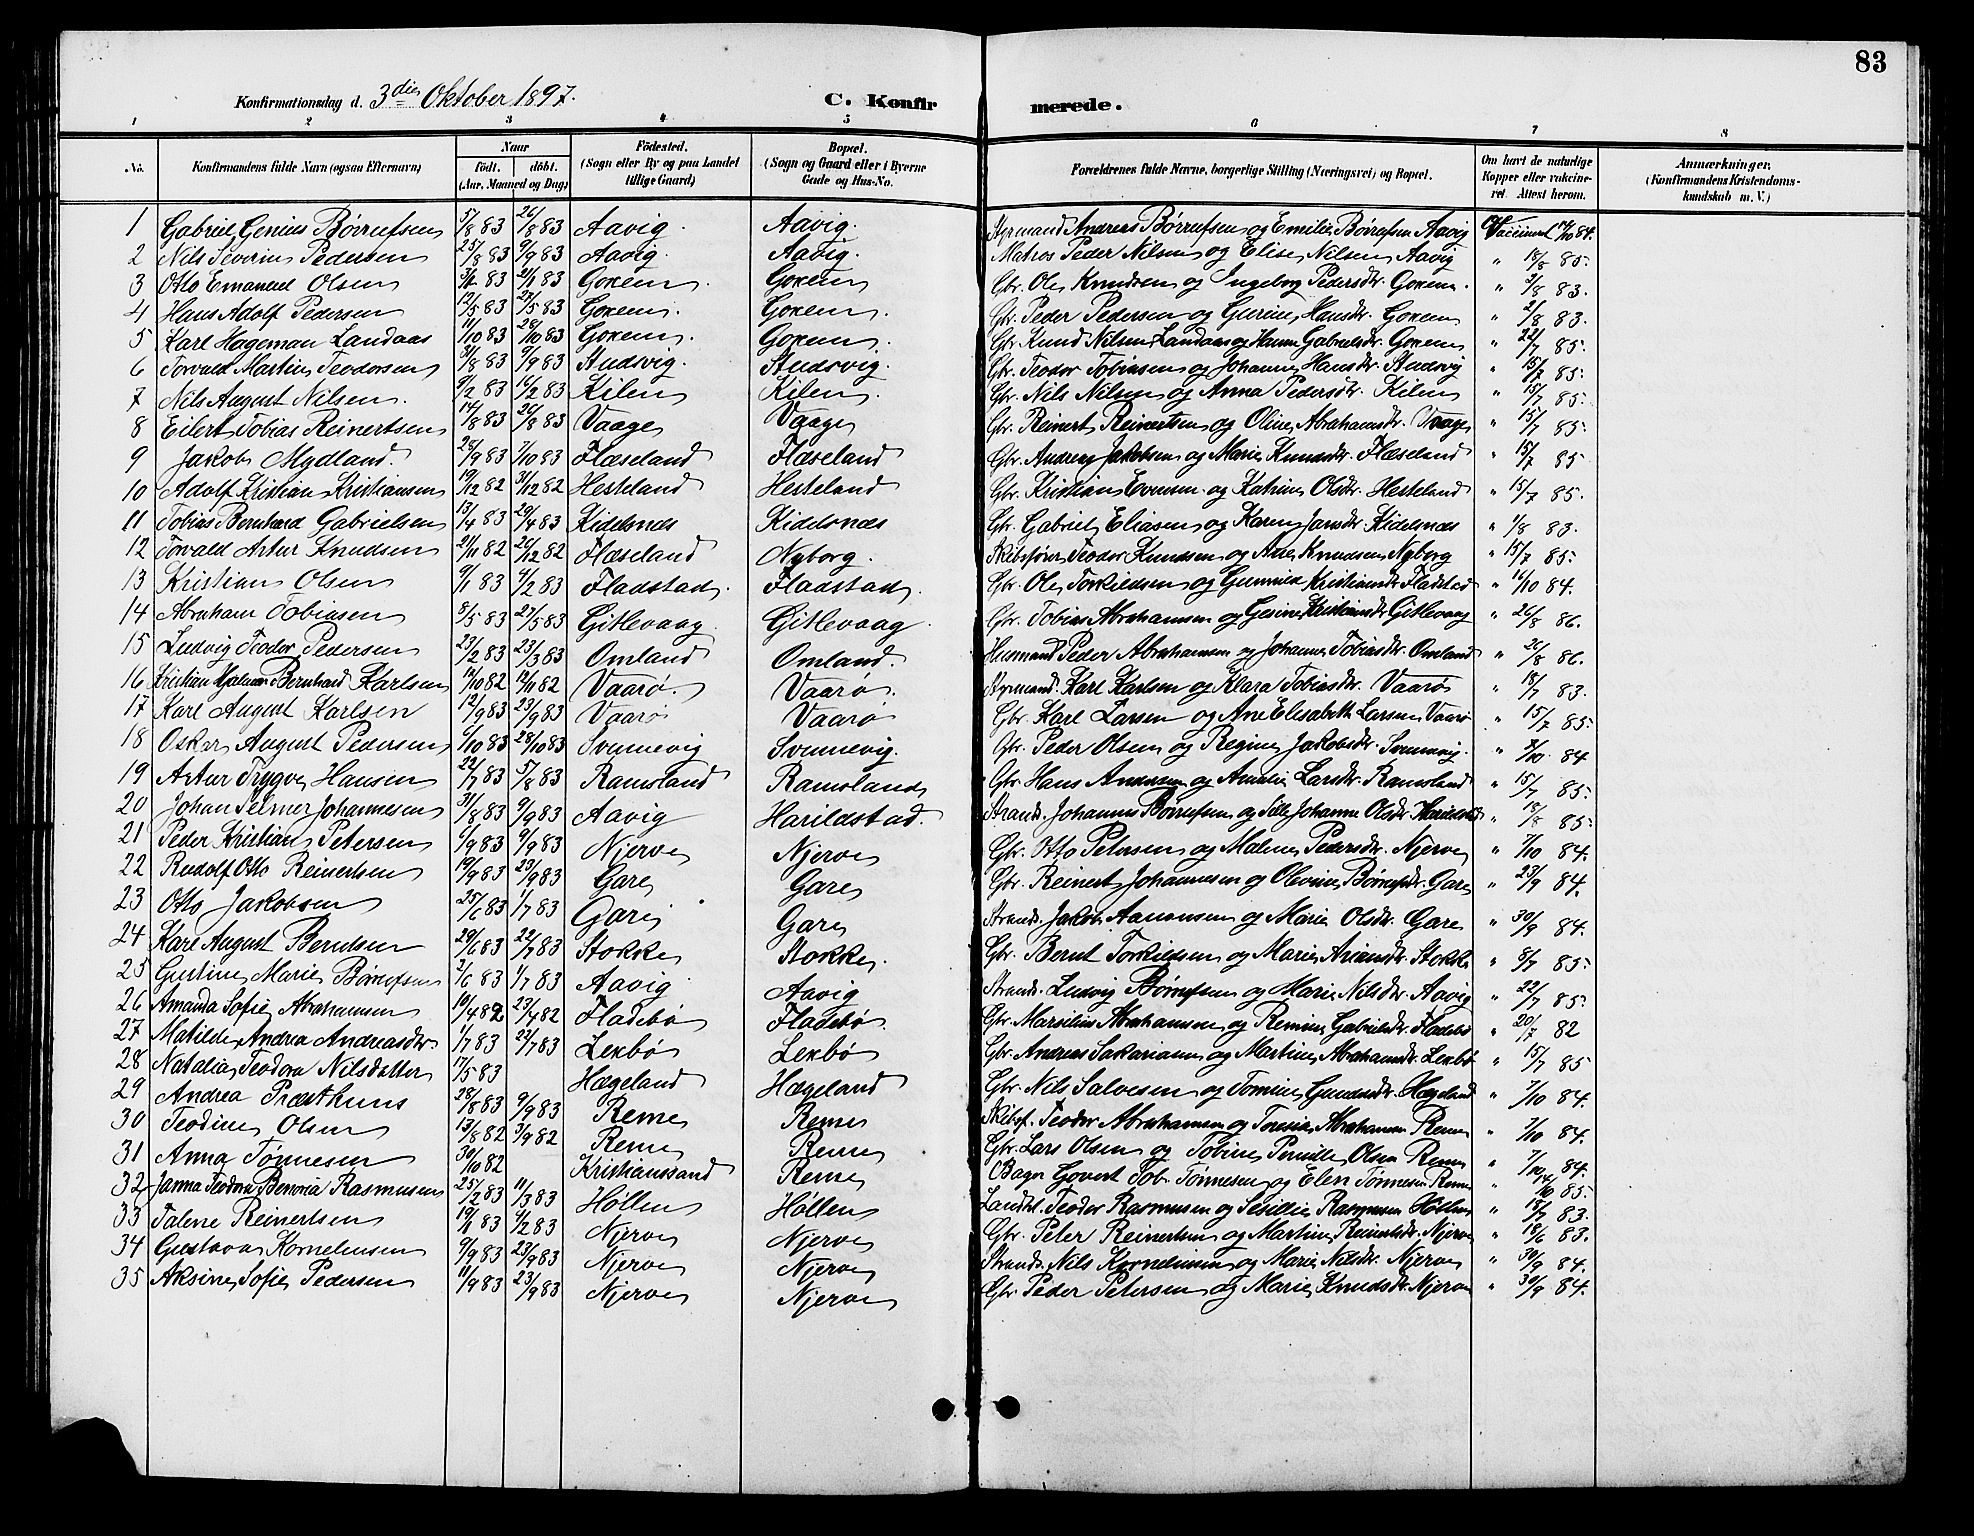 83
Konfirmationsdag d. 3die Oktober 1897.
C. Konfir merede.
1 2 3 4 5 6 7 8
No. Konfirmandens fulde Navn (ogsaa Efternavn) Naar født. døbt. (Aar, Maaned og Dag) Fødested. (Sogn eller By og paa Landet tillige Gaard) Bopæl. (Sogn og Gaard eller i Byerne Gade og Hus-No. Forældrenes fulde Navne, borgerlige Stilling (Næringsvei) og Bopæl. Om havt de naturlige Kopper eller vakcineret. Attest herom. Anmærkninger. (Konfirmandens Kristendomskundskab m. V.)
1 Gabriel Genius Børrufsen 5/8 83 26/8 83 Aavig Aavig. Styrmand Andreas Børrufsen og Emilie Børrufsen Aavig Vaccineret 14/10 84.
2 Nils Severin Pedersen 25/8 83 9/9 83 Aavig. Aavig. Matros Peder Nilsen og Elise Nilsen Aavig " 18/8 85.
3 Otto Emanuel Olsen 83 21/1 83 Goxem. Goxem Gbr. Ole Knudsen og Ingeborg Pedersdr. Goxem. " 2/8 83.
4 Hans Adolf Pedersen 12/5 83 27/5 83 Goxem. Goxem. Gbr. Peder Pedersen og Gurine Hansdr. Goxem " 2/8 83.
5 Karl Hageman Landaas 11/10 83 28/10 83 Goxem. Goxem. Gbr. Knud Nilsen Landaas og Hanne Gabrielsdr. Goxem " 22/7 85.
6 Torvald Martin Teodorsen 31/8 83 9/9 83 Studsvig. Studsvig. Gbr. Teodor Tobiasen og Johanne Hansdr. Studsvig " 15/7 85.
7 Nils August Nilsen. 9/2 83 16/2 83 Kilen Kilen. Gbr. Nils Nilsen og Anna Pedersdr. Kilen " 15/7 85.
8 Eilert Tobias Reinertsen 14/8 83 26/8 83 Vaage Vaage Gbr. Reinert Reinertsen og Oline Abrahamsdr. Vaage " 15/7 85.
9 Jakob Mydland. 28/9 83 7/10 83 Flæseland Flæseland Gbr. Andreas Jakobsen og Marie Knudsdr. Flæseland " 15/7 85
10 Adolf Kristian Kristiansen 19/12 82 31/12 82 Hesteland Hesteland Gbr. Kristian Evensen og Katrine Olsdr. Hesteland " 15/7 85.
11 Tobias Bernhard Gabrielsen 13/4 83 29/4 83 Kiddsnæs Kiddsnæs Gbr. Gabriel Eliasen og Karen Jansdr. Kiddsnæs " 1/8 83.
12 Torvald Artur Knudsen 21/11 82 26/12 82 Flæseland Nyborg. Skibsfører Teodor Knudsen og Ane Knudsen Nyborg " 15/7 85.
13 Kristian Olsen 9/1 83 4/2 83 Fladstad. Fladstad. Gbr. Ole Torkildsen og Gunnild Kristiansdr. Fladstad " 16/10 84.
14 Abraham Tobiasen 8/5 83 27/5 83 Gitlevaag. Gitlevaag. Gbr. Tobias Abrahamsen og Gesine Kristiansdr. Gitlevaag " 26/8 86.
15 Ludvig Teodor Pedersen 23/2 83 23/3 83 Omland Omland. Husmand Peder Abrahamsen og Johanne Tobiasdr. Omland " 26/8 86.
16 Kristian Hjalmar Bernhard Karlsen 14/10 82 12/11 82 Vaarø. Vaarø. Styrmand. Karl Karlsen og Klara Tobiasdr. Vaarø " 18/7 83.
17 Karl August Karlsen 12/9 83 23/9 83 Vaarø Vaarø Gbr. Karl Larsen og Ane Elisabeth Larsen Vaarø " 15/7 85.
18 Oskar August Pedersen 6/10 83 28/10 83 Svinnevig Svinnevig. Gbr. Peder Olsen og Regine Jakobsdr. Svinnevig. " 7/10. 84
19 Artur Trygve Hansen 22/7 83 5/8 83 Ramsland Ramsland Gbr. Hans Andersen og Amalie Larsdr. Ramsland " 15/7 85.
20 Johan Selmer Johannesen 31/7 83 9/9 83 Aavig Harildstad. Strands. Johannes Børrufsen og Sille Johanne Olsdr. Harildstad " 18/8 85.
21 Peder Kristian Petersen 6/9 83 9/9 83 Njerve Njerve Gbr. Otto Petersen og Malene Pedersdr. Njerve " 7/10 84.
22 Rudolf Otto Reinertsen 19/9 83 23/9 83 Gare Gare Gbr. Reinert Johannesen og Olevine Børrufsdr. Gare " 23/9 84.
23 Otto Jakobsen 25/6 83 1/7 83 Gare Gare Strands. Jakob Aanonsen og Marie Olsdr. Gare " 30/9 84.
24 Karl August Berntsen 29/6 83 22/7 83 Stokke Stokke. Gbr. Bernt Torkildsen og Marie Ariansdr. Stokke " 8/7 85.
25 Gustine Marie Børrufsen 2/6 83 1/7 83 Aavig Aavig Strands. Ludvig Børrufsen og Marie Nilsdr. Aavig " 22/7 85.
26 Amanda Sofie Abrahamsen 10/4 82 23/4 82 Fladebø Fladebø. Gbr. Marselius Abrahamsen og Remine Gabrielsdr. Fladebø " 20/7 82
27 Matilde Andrea Andreasdr. 1/7 83 22/7 83 Lexbø Lexbø Gbr. Andreas Sakariasen og Martine Abrahamsdr. Lexbø " 15/7 85
28 Natalia Teodora Nilsdatter 17/5 83 Hægeland Hægeland Gbr. Nils Salvesen og Tomine Gundersdr. Hægeland " 7/10 84.
29 Andrea Præsthuus 28/8 83 9/9 83 Reme Reme Skibsf. Teodor Abrahamsen og Teresia Abrahamsen Reme " 7/10 84.
30 Teodine Olsen 13/8 82 3/9 82 Reme Reme Gbr. Lars Olsen og Tobine Pernille Olsen Reme " 7/10 84.
31 Anna Tønnesen 30/10 82 Kristianssand Reme Bager Govert Tob. Tønnesen og Elen Tønnesen Reme " 14/10 85.
32 Janna Teodora Benoria Rasmusen 25/2 83 11/3 83 Høllen Høllen Landh. Teodor Rasmusen og Sesidia Rasmusen Høllen " 18/7 83.
33 Talene Reinertsen 19/1 83 4/2 83 Njerve Njerve Gbr. Peter Reinertsen og Martine Reinertsdr. Njerve " 18/6 83.
34 Gustava Korneliusen 9/9 83 23/9 83 Njerve Njerve Strands. Nils Korneliusen og Marie Nilsdr. Njerve " 30/9 84.
35 Aksine Sofie Pedersen 11/9 83 23/9 83 Njerve Njerve Gbr. Peder Petersen og Marie Knudsdr. Njerve " 30/9 84.